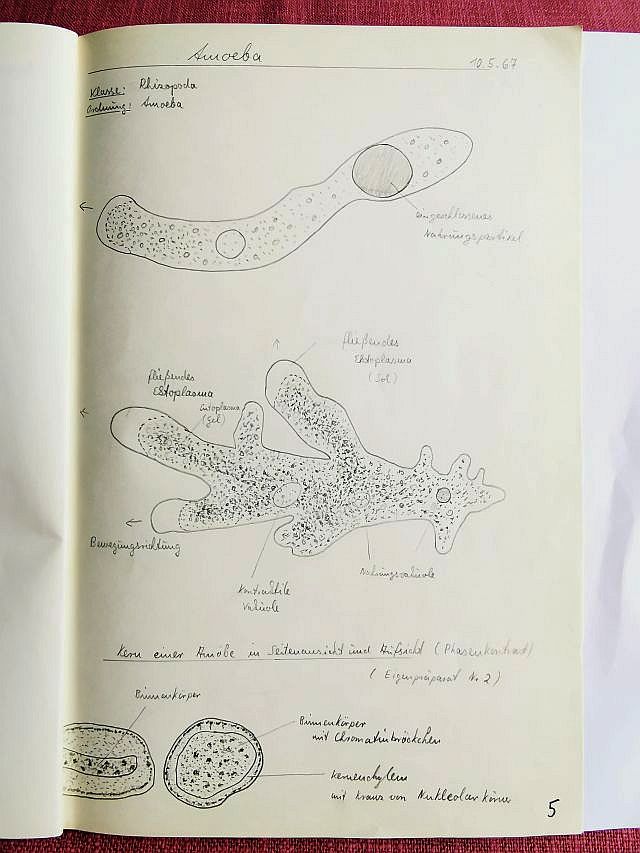 Amoeba
10.5.67
Klasse: Rhizopoda
Ordnung: Amoeba
eingeschlossenes
Nahrungspartikel
fließendes
Ektoplasma
(Sol)
fließendes
Ektoplasma
Entoplasma
(Gel)
Bewegungsrichtung
Kontraktile
Vakuole
Nahrungsvakuole
Kern einer Amöbe in Seitenansicht und Aufsicht (Phasenkontrast)
(Eigenpräparat Nr. 2)
Binnenkörper
Binnenkörper
mit Chromatinbröckchen
Kernenchylem
mit Kranz von Nukleolar körner
5